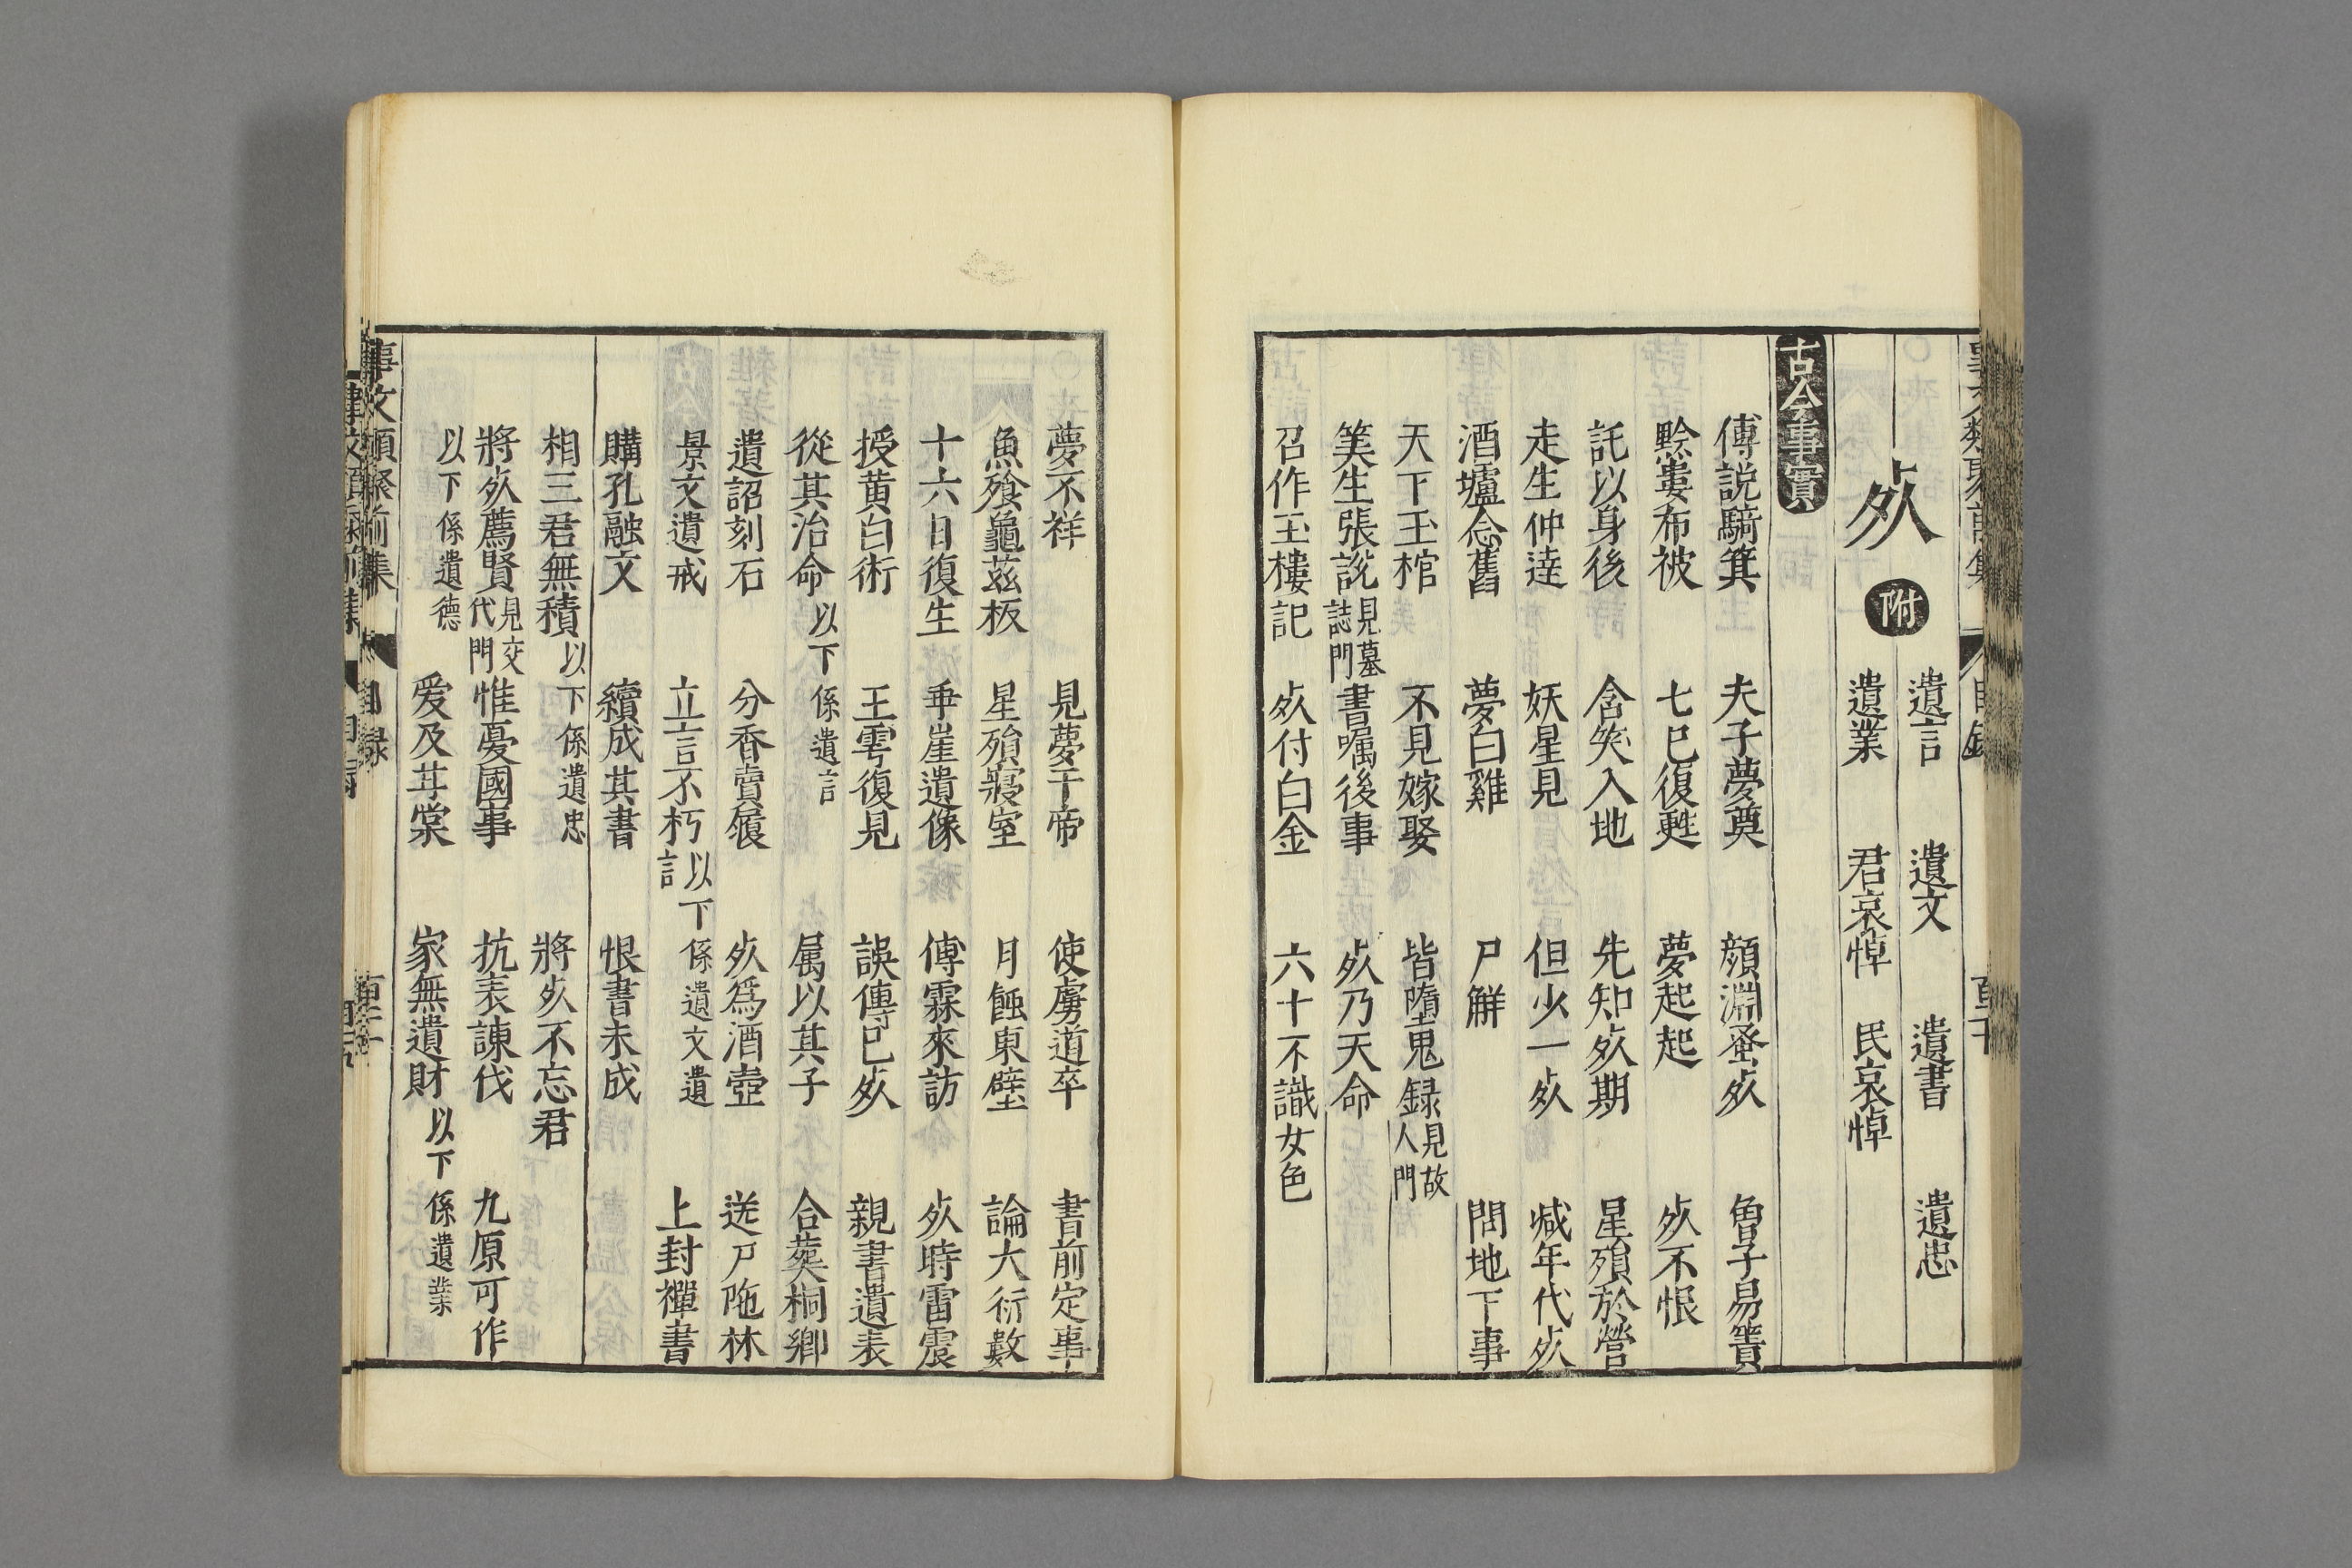 死 附 遺言 遺文 遺書 遺忠
遺業 君哀悼 民哀悼
古今事實
傅説騎箕 夫子夢奠 顔淵蚤死 曾子易簀
黔婁布被 七巳復甦 夢起起 死不恨
託以身後 含笑入地 先知死期 星殞於營
走生仲達 妖星見 但少一死 减年代死
酒壚念舊 夢白雞 尸解 問地下事
天下玉棺 不見嫁娶 皆墮鬼録 見故人門
筭生張説 見墓誌門 書嘱後事 死乃天命
召作玉樓記 死付白金 六十不識女色
夢不祥 見夢于帝 使虜道卒 書前定事
魚飱龜茲板 星殞寢室 月蝕東壁 論大衍數
十六日復生 乖崖遺像 傅霖來訪 死時雷震
授黄白術 王雩復見 誤傳巳死 親書遺表
從其治命 以下係遺言 属以其子 合葬桐鄉
遺詔刻石 分香賣履 死爲酒壺 送尸陁林
景文遺戒 立言不朽 以下係遺文遺言 上封禪書
購孔融文 續成其書 恨書未成
相三君無積 以下係遺忠 將死不忘君
將死薦賢 見交代門 惟憂國事 抗表諫伐 九原可作
以下係遺德 爱及甘棠 家無遺財 以下係遺業
事文類聚前集 目録